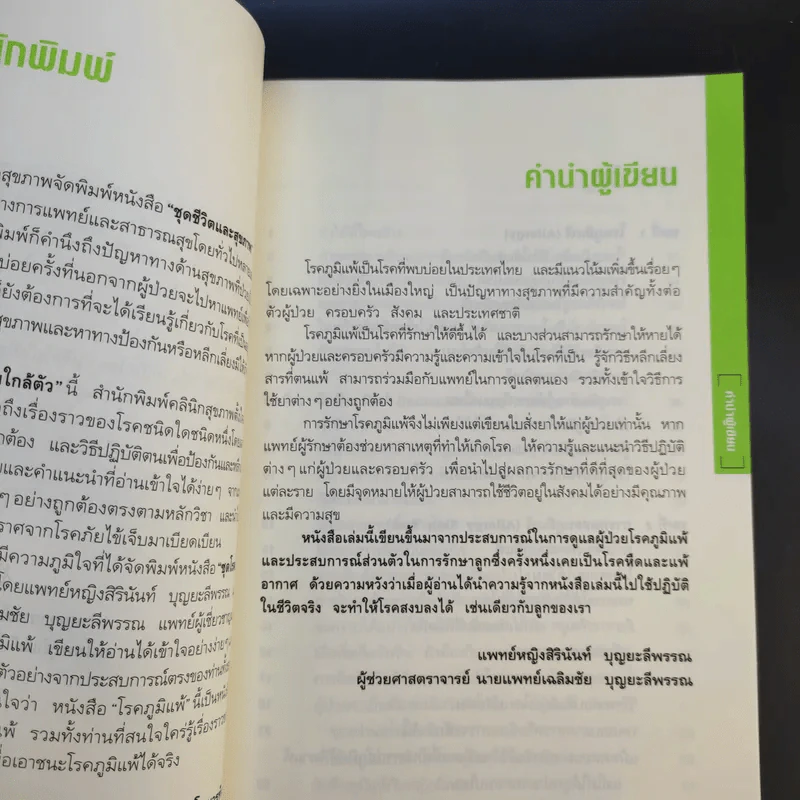 นักพิมพ์
สุขภาพจัดพิมพ์หนังสือ "ชุดชีวิตและสุขภาพ
างการแพทย์และสาธารณสุขโดยทั่วไป
พิมพ์ก็คำนึงถึงปัญหาทางด้านสุขภาพที่
บ่อยครั้งที่นอกจากผู้ป่วยจะไปหาแพทย์
ก็ยังต้องการที่จะได้เรียนรู้เกี่ยวกับโรคที่
สุขภาพและหาทางป้องกันหรือหลีกเลี่ยง
ใกล้ตัว" นี้ สำนักพิมพ์คลินิกสุขภาพ
ถึงเรื่องราวของโรคชนิดใดชนิดหนึ่งโดย
าต้อง และวิธีปฏิบัติตนเพื่อป้องกันและ
และคำแนะนำที่อ่านเข้าใจได้ง่ายๆ จาก
ๆ อย่างถูกต้องตรงตามหลักวิชา และ
ราศจากโรคภัยไข้เจ็บมาเบียดเบียน
มีความภูมิใจที่ได้จัดพิมพ์หนังสือ
โดยแพทย์หญิงสิรินันท์ บุญยะลีพรรณ
มชัย บุญยะลีพรรณ แพทย์ผู้เชี่ยวชาญ
มิแพ้ เขียนให้อ่านได้เข้าใจอย่างง่ายๆ
ตัวอย่างจากประสบการณ์ตรงของท่าน
นใจว่า หนังสือ "โรคภูมิแพ้" นี้เป็น
พ้ รวมทั้งท่านที่สนใจใคร่รู้เรื่องราว
ื่อเอาชนะโรคภูมิแพ้ได้จริง
คำนำผู้เขียน
โรคภูมิแพ้เป็นโรคที่พบบ่อยในประเทศไทย และมีแนวโน้มเพิ่มขึ้นเรื่อยๆ
โดยเฉพาะอย่างยิ่งในเมืองใหญ่ เป็นปัญหาทางสุขภาพที่มีความสำคัญทั้งต่อ
ตัวผู้ป่วย ครอบครัว สังคม และประเทศชาติ
โรคภูมิแพ้เป็นโรคที่รักษาให้ดีขึ้นได้ และบางส่วนสามารถรักษาให้หายได้
หากผู้ป่วยและครอบครัวมีความรู้และความเข้าใจในโรคที่เป็น รู้จักวิธีหลีกเลี่ยง
สารที่ตนแพ้ สามารถร่วมมือกับแพทย์ในการดูแลตนเอง รวมทั้งเข้าใจวิธีการ
ใช้ยาต่างๆ อย่างถูกต้อง
การรักษาโรคภูมิแพ้จึงไม่เพียงแต่เขียนใบสั่งยาให้แก่ผู้ป่วยเท่านั้น หาก
แพทย์ผู้รักษาต้องช่วยหาสาเหตุที่ทำให้เกิดโรค ให้ความรู้และแนะนำวิธีปฏิบัติ
ต่างๆ แก่ผู้ป่วยและครอบครัว เพื่อนำไปสู่ผลการรักษาที่ดีที่สุดของผู้ป่วย
แต่ละราย โดยมีจุดหมายให้ผู้ป่วยสามารถใช้ชีวิตอยู่ในสังคมได้อย่างมีคุณภาพ
และมีความสุข
หนังสือเล่มนี้เขียนขึ้นมาจากประสบการณ์ในการดูแลผู้ป่วยโรคภูมิแพ้
และประสบการณ์ส่วนตัวในการรักษาลูกซึ่งครั้งหนึ่งเคยเป็นโรคหืดและแพ้
อากาศ ด้วยความหวังว่าเมื่อผู้อ่านได้นำความรู้จากหนังสือเล่มนี้ไปใช้ปฏิบัติ
ในชีวิตจริง จะทำให้โรคสงบลงได้ เช่นเดียวกับลูกของเรา
แพทย์หญิงสิรินันท์ บุญยะลีพรรณ
ผู้ช่วยศาสตราจารย์ นายแพทย์เฉลิมชัย บุญยะลีพรรณ
คำนำผู้เขียน